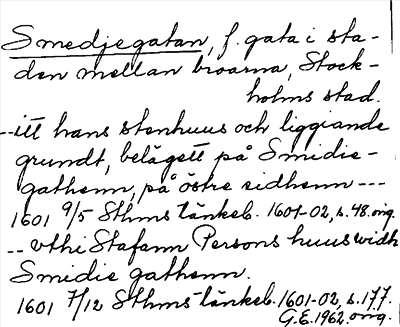 Smedjegatan, f. gata i sta-
den mellan broarna, Stock-
holms stad.
--itt hans stenhuus och liggiande
grundt, belägett på Smidie-
gathenn, på östre sidhenn ---
1601 9/5 Sthms tänkeb. 1601-02, s. 48. orig.
-- vthi Stafann Persons huus widh
Smidie gathenn.
1601 7/12 Sthms tänkeb. 1601-02, s. 177.
G.E. 1962. orig.